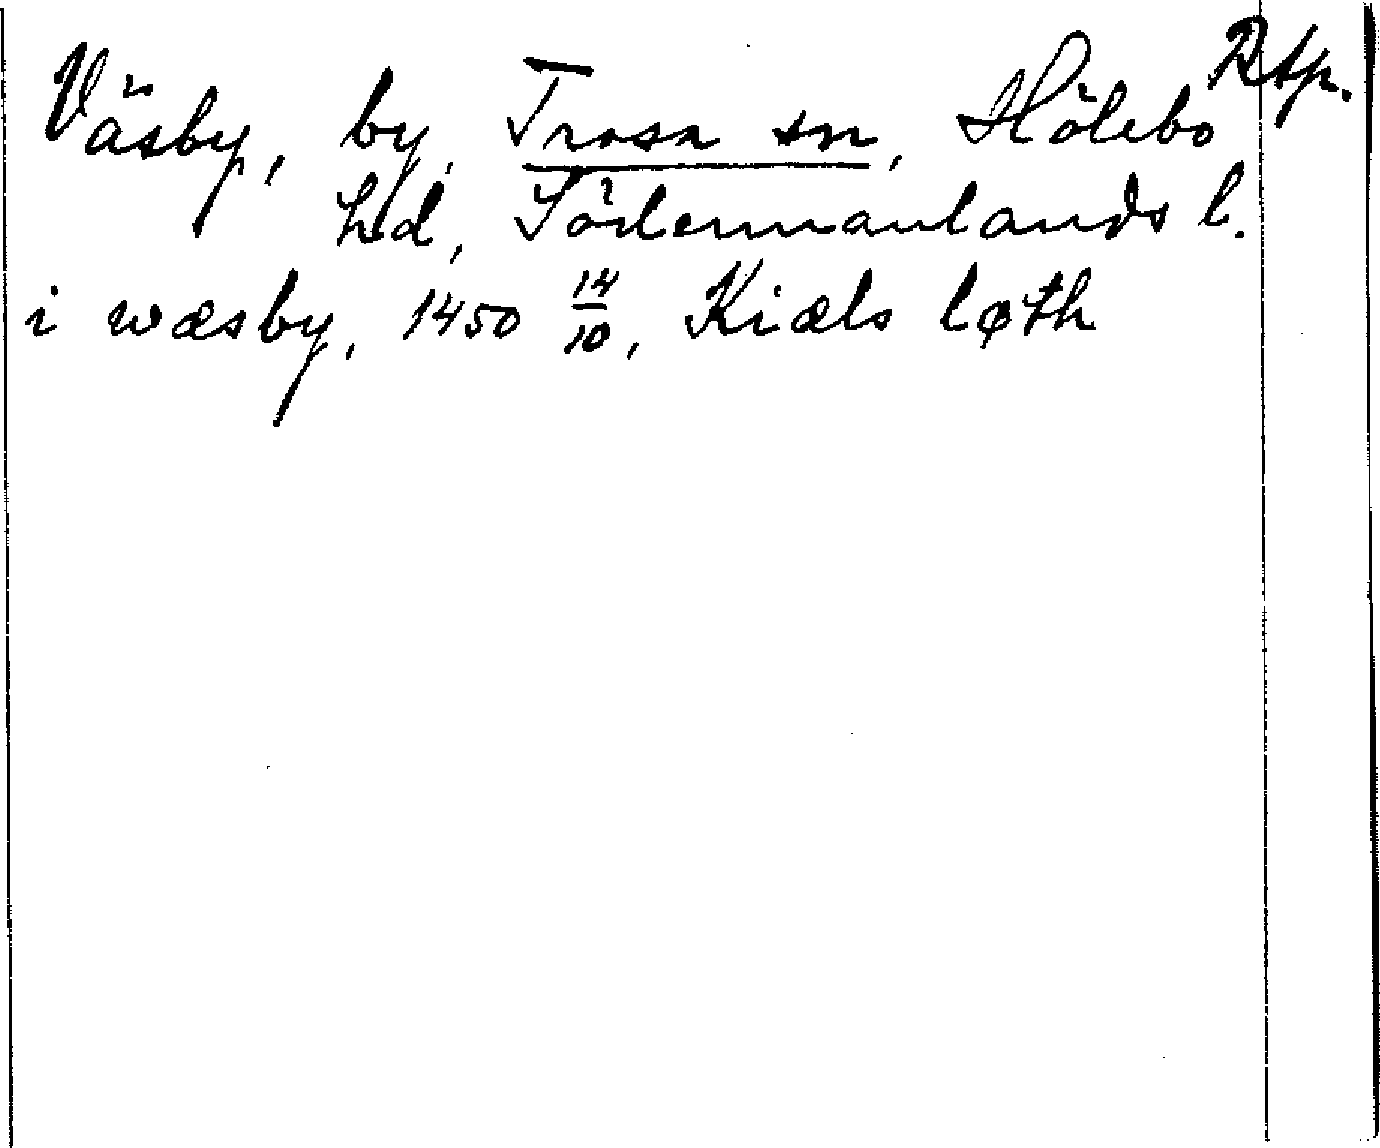 Väsby, by, Trosa sn, Hölebo Rtp.
hd, Södermanlands l.
i wæsby, 1450 14/10, Kiæls løth